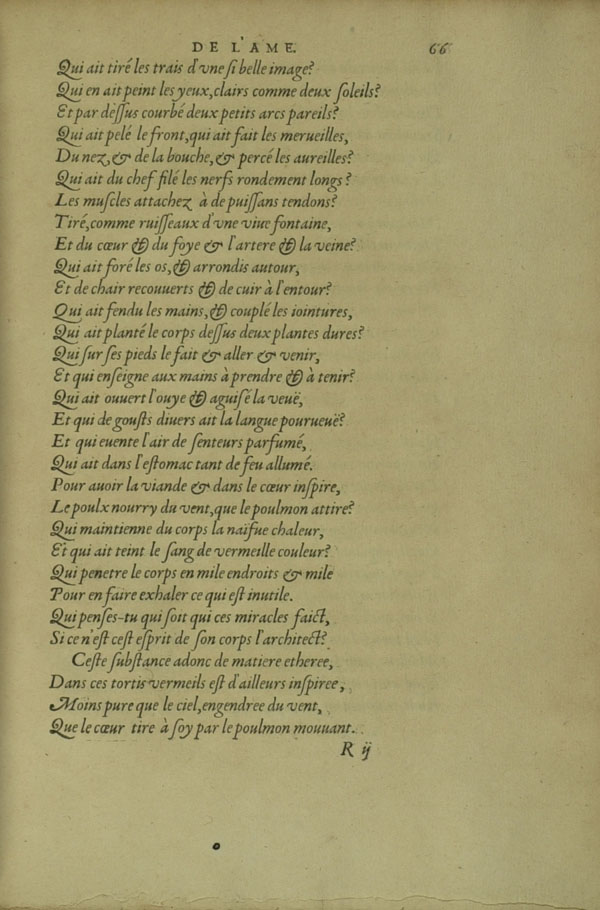 DE L'AME. 66
Qui ait tiré les trais d'vne ſi belle image?
Qui en ait peint les yeux, clairs comme deux ſoleils?
Et par deſſus courbé deux petits arcs pareils?
Qui ait pelé le front, qui ait fait les merueilles,
Du nez, & de la bouche, & percé les aureilles?
Qui ait du chef filé les nerfs rondement longs?
Les muſcles attachez à de puiſſans tendons?
Tiré, comme ruiſſeaux d'vne viue fontaine,
Et du cœur & du foye & l'artere & la veine?
Qui ait foré les os, & arrondis autour,
Et de chair recouuerts & de cuir à l'entour?
Qui ait fendu les mains, & couplé les iointures,
Qui ait planté le corps deſſus deux plantes dures?
Qui ſur ſes pieds le fait & aller & venir,
Et qui enſeigne aux mains à prendre & à tenir?
Qui ait ouuert l'ouye & aguiſé la veuë,
Et qui de gouſts diuers ait la langue pourueuë?
Et qui euente l'air de ſenteurs parfumé,
Qui ait dans l'eſtomac tant de feu allumé.
Pour auoir la viande & dans le cœur inſpire,
Le poulx nourry du vent, que le poulmon attire?
Qui maintienne du corps la naïfue chaleur,
Et qui ait teint le ſang de vermeille couleur?
Qui penetre le corps en mile endroits & mile
Pour en faire exhaler ce qui eſt inutile.
Qui penſes-tu qui ſoit qui ces miracles faict,
Si ce n'eſt ceſt eſprit de ſon corps l'architect?
Ceſte ſubſtance adonc de matiere etheree,
Dans ces tortis vermeils eſt d'ailleurs inſpiree,
Moins pure que le ciel, engendree du vent,
Que le cœur tire à ſoy par le poulmon mouuant.
R ij